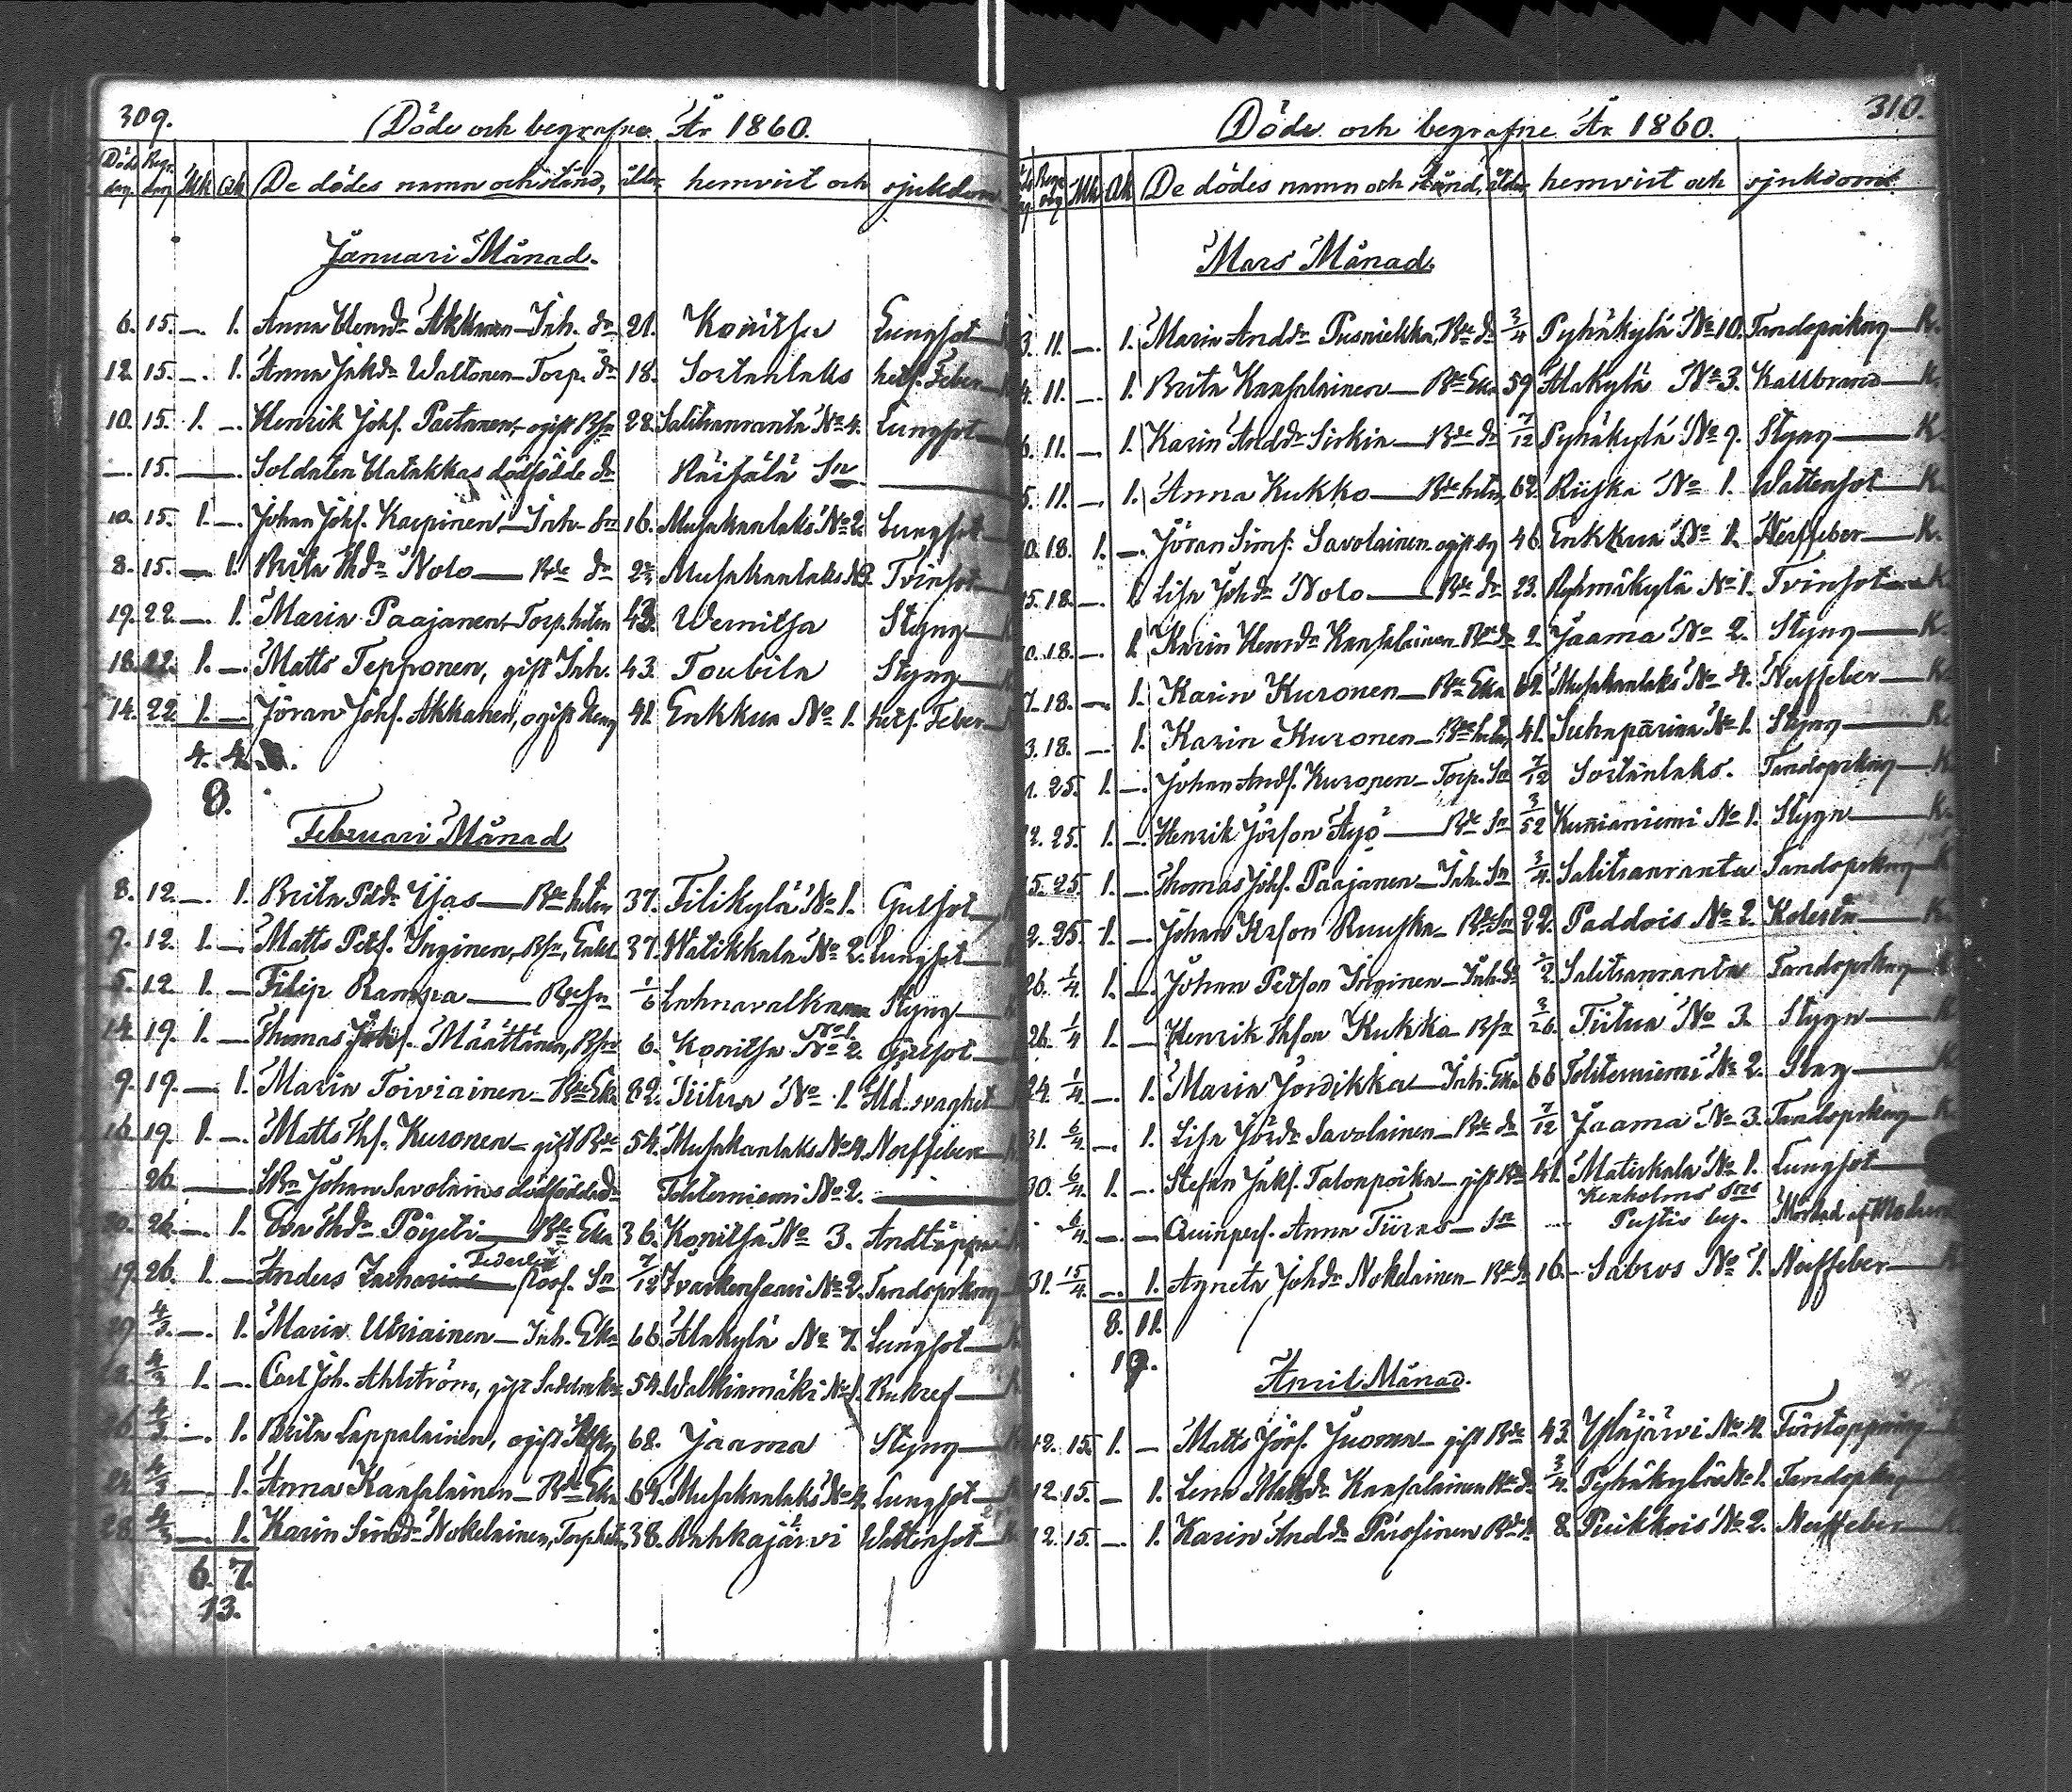 309.
Döde och begrafne År 1860.
Döds dag Begr. dag Mk Qk De dödes namn och stånd, ålder hemvist och sjukdom
Januari Månad.
6. 15. — 1. Anna Henrdr Akkanen — Inh. dr 21. Konitsa Lungsot
12. 15. — 1. Anna Jakdr Waltonen — Torp. dr 18. Sortanlaks hets. Feber
10. 15. 1. — Henrik Johs. Partanen, ogift 28. Salitsanranta No 4. Lungsot
— 15. — Soldaten Uatakkas dödfödde dr Räisälä Sn
10. 15. 1. — Johan Johs. Karpinen — Inh. Sn 16. Musakanlaks No 2. Lungsot
8. 15. — 1. Brita Thdr Nolo — Bde dr Musakanlaks Tvinsot
19. 22. — 1. Maria Paajanen, Torp. hstru 43. Wernitsa Styng
18. 22. 1. — Matts Tepponen, gift Inh. 43. Toubila Styng
14. 22. 1. — Jöran Johs. Akkanen, ogift dreng 41. Enkkua No 1. hets. Feber
4. 4.
8.
Februari Månad
8. 12. — 1. Brita Pdr Ijas — Bde hstru 37. Tilikylä No 1. Gulsot
9. 12. 1. — Matts Pets. Inginen, Bsn, Enkl. 37. Watikkala No 2. Lungsot
5. 12. 1. — Filip Rampa — Bde Sn 1/6 Lahnavalkama Styng
No 1.
14. 19. 1. — Thomas Johs. Määttänen, Bsn 6. Konitsa No 2. Gulsot
9. 19. — 1. Maria Toiviainen — Bde Eka 82. Tiitua No 1. Åld. svaghet
16. 19. 1. — Matts Ths. Kuronen — gift Bde 54. Musakanlaks No 4. Nerffeber
26. — Johan Savolains dödfödde dr Tolterniemi No 2.
20. 26. — 1. Eva Thdr Pöyeti — Bde Eka 36. Konitsa No 3. Andtäppa
19. 26. 1. — Anders Jörs. Sn 7/12 No 2. Tandsprkng
29. 4/3. — 1. Maria Utriainen — Inh. Eka 66. Alakylä No 7. Lungsot
4/3 1. — Carl Joh. Ahlström, gift 54. Walkiamäki No 1.
4/3. — 1. Brita Lappalainen, ogift 68. Jaama Styng
24. 4/3 — 1. Anna Kansalainen — Bde Eka 64. Musakanlaks No 4. Lungsot
28. 4/3 — 1. Karin Simdr Nokelainen, Torp. hstru 38. Ahkajärvi Wattensot
6. 7.
13.
310.
Döde och begrafne År 1860.
Begr. dag Mk Qk De dödes namn och stånd, ålder hemvist och sjukdom
Mars Månad.
3. 11. — 1. Maria Anddr Pusniekka, Bde dr 3/4 Pyhäkylä No 10. Tandsprikng — K.
4. 11. — 1. Brita Kansalainen — Bde Eka 59 Alakylä No 3. Kallbrand — K.
6. 11. — 1. Karin Anddr Sirkia — Bde dr 7/12 Pyhäkylä No 9. Styng — K.
5. 11. — 1. Anna Kukko — Bde hstru 62. Riiska No 1. Wattensot — K.
10. 18. 1. — Jöran Sims. Savolainen ogift dg 46 Enkkua No 1. Nerffeber — K.
15. 18. — 1. Lisa Johdr Nolo — Bde dr 23. Ryhmäkylä No 1. Tvinsot — K.
18. — 1. Karin Henrdr Kansalainen Bde dr 2. Jaama No 2. Styng — K.
7. 18. — 1. Karin Kuronen — Bde Eka Musakanlaks No 4. Nerffeber — K.
3. 18. — 1. Karin Kuronen — Bde hstru 41. Suhnpärinä No 1. Styng — K.
25. 1. — Johan Ands. Kuronen — Torp. Sn 7/12 Sortanlaks. Tandsprkng — K.
25. 1. — Henrik Jörson Äyö — Bde Sn 3/52 Kunnianiemi No 1. Stygn — K.
15. 25. 1. — Thomas Johs. Paajanen — Inh. Sn 3/4. Salitsanranta Tandsprkng
25. 1. — Johan Ruuska — Bde Sn 22. Paddois No 2. Kolerin — K.
26. 1/4. 1. — Johan Petson Inginen — Inh. 1/2 Salitsanranta Tandsprkng
26. 1/4 1. — Henrik Thson Kukko — Bsn 3/26. Tiitua No 3. Stygn
24. 1/4. — 1. Maria Jordikka — Inh. Eka 66 Tolterniemi No 2. Stng
31. 6/4. — 1. Lisa Jördr Savolainen — Bde dr 7/12 Jaama No 3. Tandsprkng — K.
30. 6/4. 1. — Stefan Jaks. Talonpoika — gift Bde 41. Matiskala No 1. Lungsot
Kexholms Sns
6/4. — — Quinpers. Anna Tiiras — Sn Pustis by. Mördad af
31. 15/4. — 1. Agneta Johdr Nokelainen — Bde dr 16. Sabros No 1. Nerffeber
8. 11.
19.
April Månad.
12. 15. 1. — Matts Jörs. Juoma — gift Bde 43. Yläjärwi No 4. Förstoppning
12. 15. — 1. Lena Mattsdr Kansalainen Bde dr 3/4. Pyhäkylä No 1. Tandsprkng
12. 15. — 1. Karin Anddr Pärssinen Bde dr 8. Puikkois No 2. Nerffeber